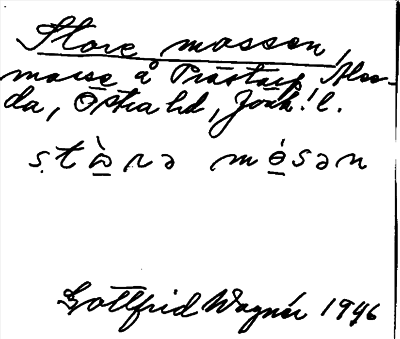 Store mossen,
mosse å Prästarp Alse-
da, Östra hd, Jönk. l.
stὼra mósan
Gottfrid Wagnér 1946